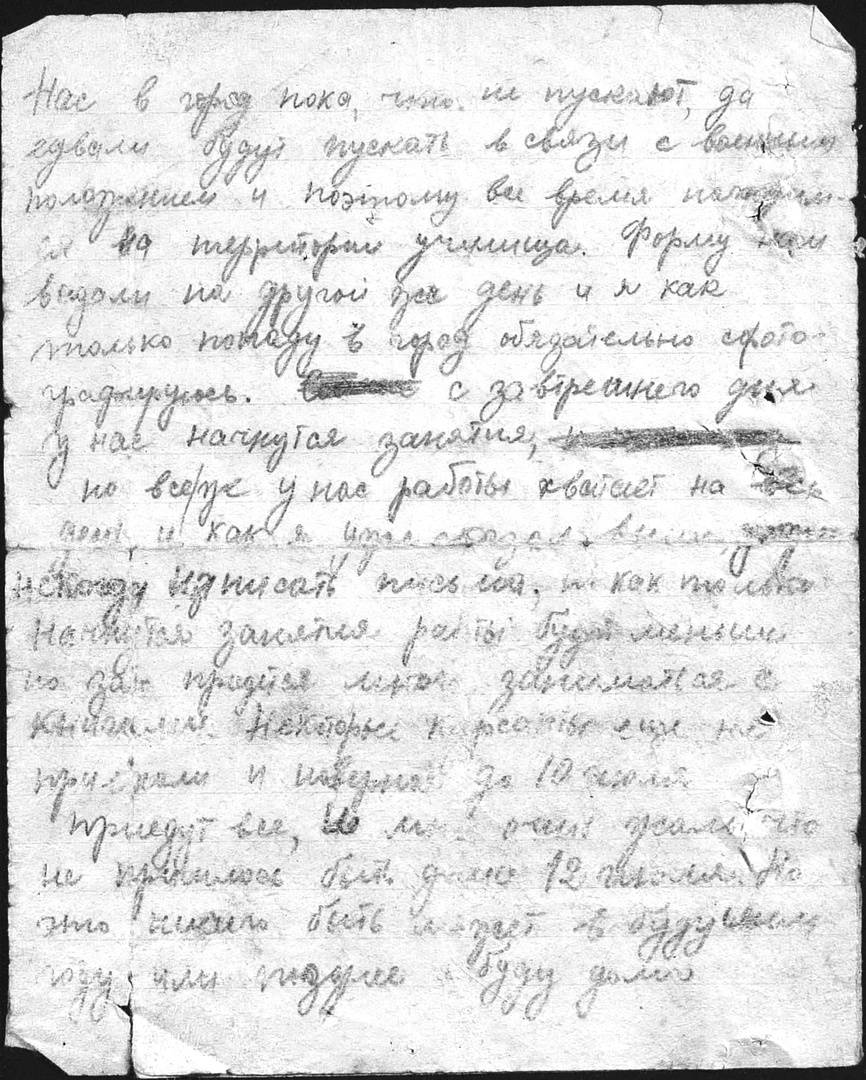 Нас в город пока, что не пускают, да
едвали будут пускать в связи с военным
положением и поэтому все время находим-
ся на территории училища. Форму нам
выдали на другой же день и я как
только попаду в город обязательно сфото-
графируюсь. с завтрешнего дня
у нас начнутся занятия,
но всеже у нас работы хватает на весь
день, и как я уже
некогда написать письма, и как только
начнутся занятия работы будет меньше
но зато придется много заниматся с
книгами. Некоторые курсанты еще не
приехали и наверное до 10 июля
приедут все, но мне очень жаль, что
не пришлось быть дома 12 июля. Но
это ничего быть может в будущем
году или позднее буду дома